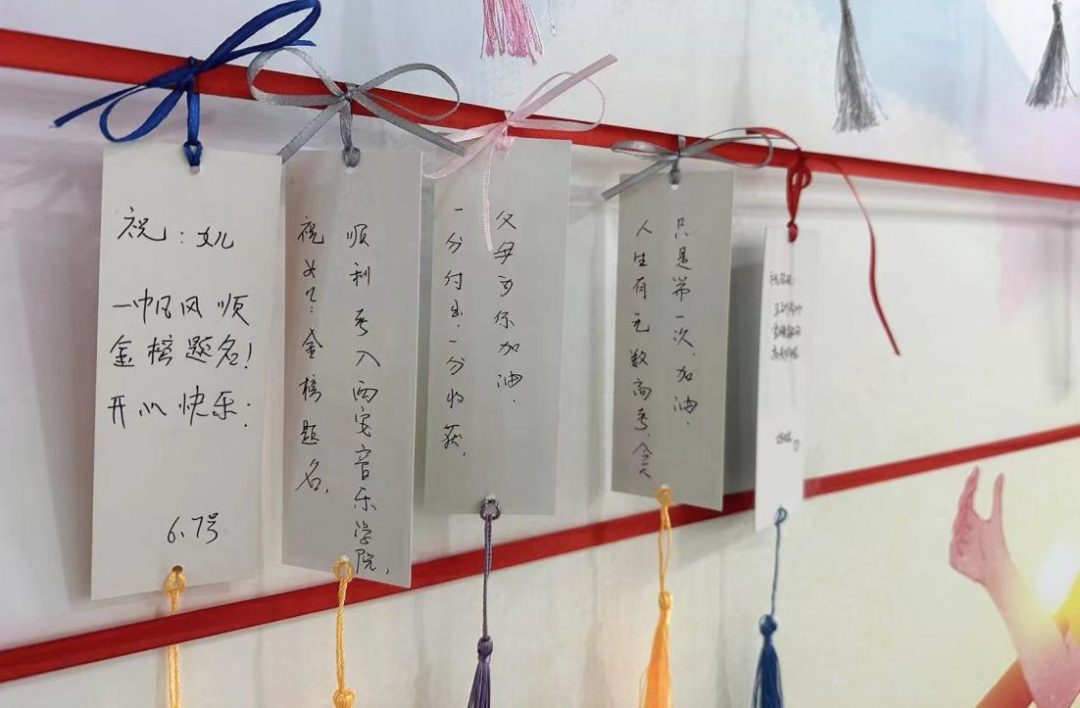 祝：女儿
一帆风顺
金榜题名！
开心快乐：
6.7号
祝女儿：金榜题名，
顺利考入西安音乐学院，
一分付出，一分收获，
父母为你加油．
人生有无数高考，今天
只是第一次，加油．